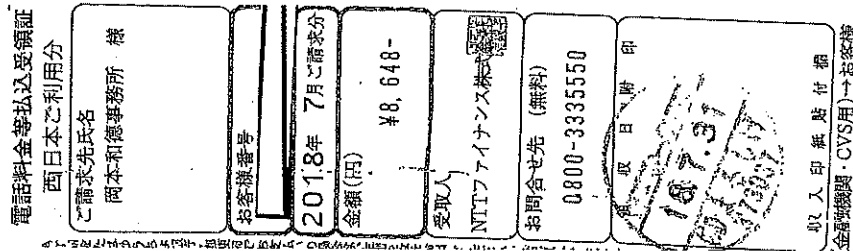 電話料金等払込受領証
西日本ご利用分
ご請求先氏名
岡本和德事務所 様
お客様番号
2018年 7月ご請求分
金額(円)
¥8,648-
受取人
NTTファイナンス株式会社
お問合せ先 (無料)
0800-3335550
領収日附印
18.7.31
収入印紙貼付欄
(金融機関・CVS用)→お客様